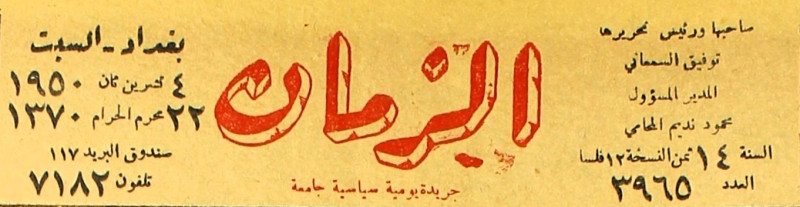 صاحبها ورئيس تحريرها
توفيق السمعاني
المدير المسؤول
محمود نديم المحامي
السنة ١٤ ثمن النسخة ١٢ فلسا
العدد ٣٩٦٥
الزمان
جريدة يومية سياسية جامعة
بغداد - السبت
٤ تشرين ثان ١٩٥٠
٢٢ محرم الحرام ١٣٧٠
صندوق البريد ١١٧
تلفون ٧١٨٢